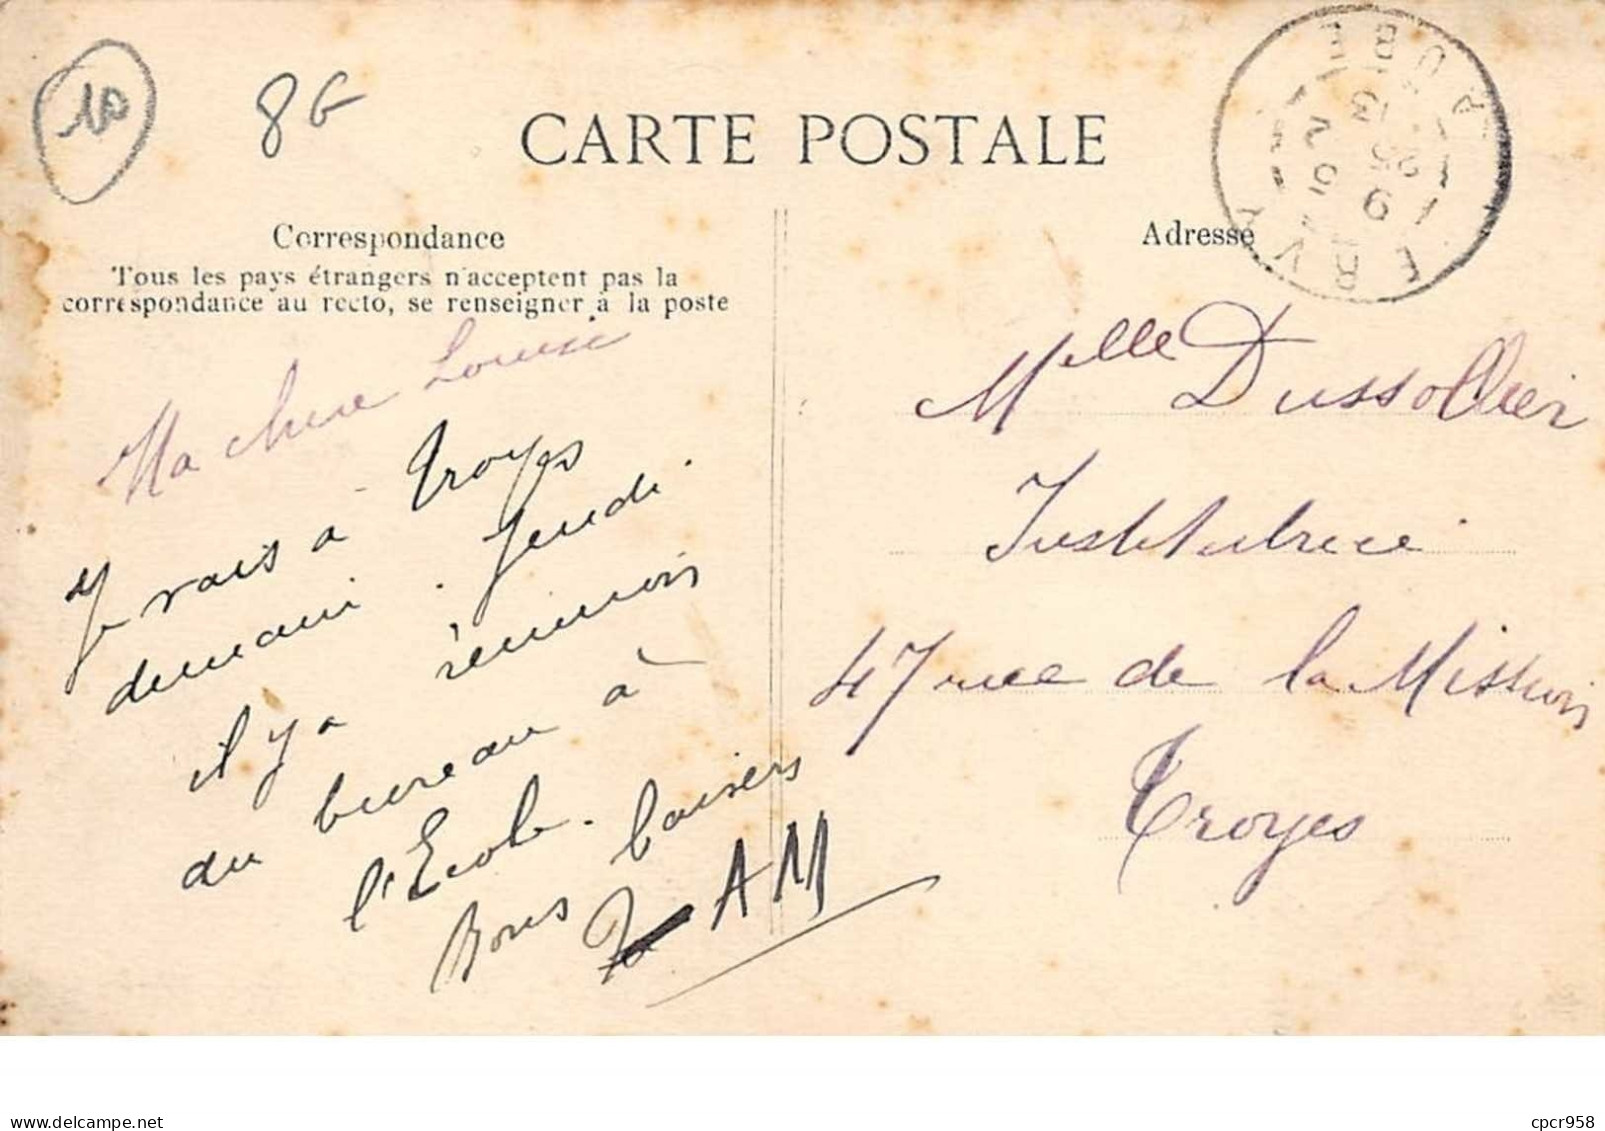 10
8G
CARTE POSTALE
ERVY
AUBE
Correspondance
Tous les pays étrangers n'acceptent pas la
correspondance au recto, se renseigner à la poste
Adresse
Ma chere Louise
Je vais a Troyes
demain. Jeudi
il y a réunion
au bureau à
l'Ecole.
Bons baisers
AM
Melle Dussollier
Institutrice
47 rue de la Mission
Troyes
delcampe.net
cpcr958